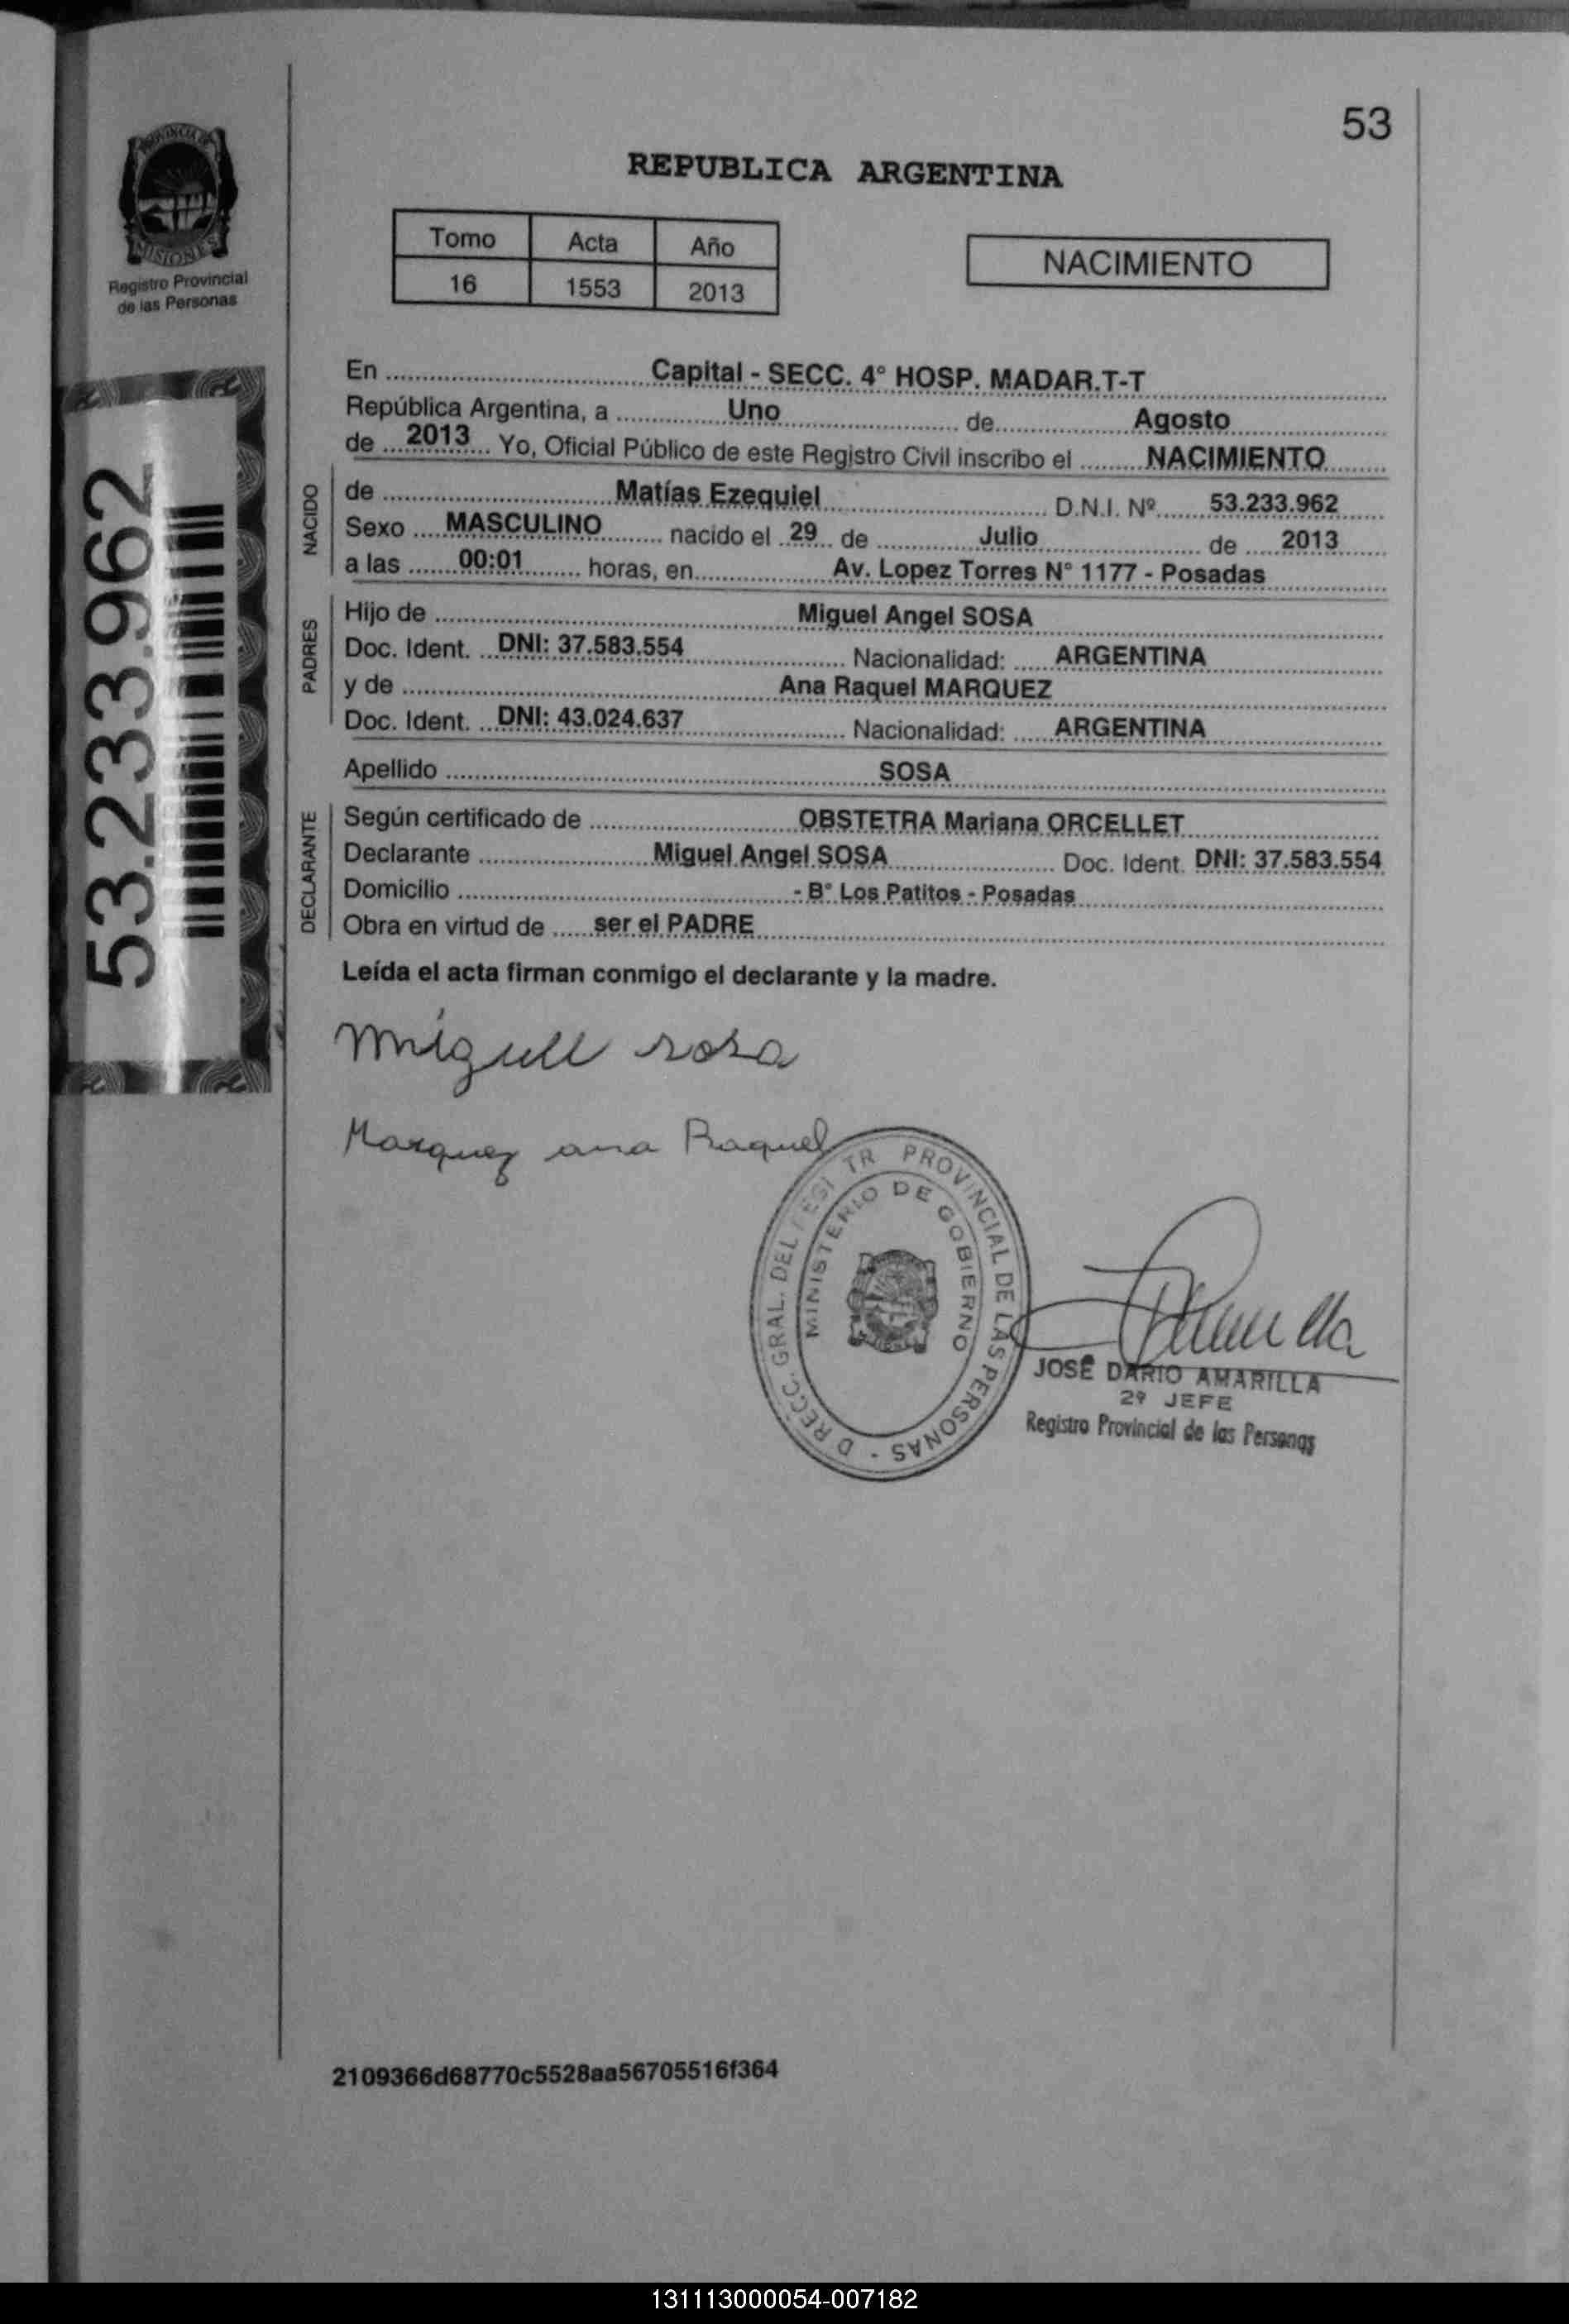 53
PROVINCIA DE
MISIONES
Registro Provincial
de las Personas
REPUBLICA ARGENTINA
Tomo Acta Año
16 1553 2013
NACIMIENTO
En Capital - SECC. 4° HOSP. MADAR.T-T
República Argentina, a Uno de Agosto
de 2013 Yo, Oficial Público de este Registro Civil inscribo el NACIMIENTO
NACIDO
de Matías Ezequiel D.N.I. Nº 53.233.962
Sexo MASCULINO nacido el 29 de Julio de 2013
a las 00:01 horas, en Av. Lopez Torres N° 1177 - Posadas
PADRES
Hijo de Miguel Angel SOSA
Doc. Ident. DNI: 37.583.554 Nacionalidad: ARGENTINA
y de Ana Raquel MARQUEZ
Doc. Ident. DNI: 43.024.637 Nacionalidad: ARGENTINA
Apellido SOSA
DECLARANTE
Según certificado de OBSTETRA Mariana ORCELLET
Declarante Miguel Angel SOSA Doc. Ident. DNI: 37.583.554
Domicilio - B° Los Patitos - Posadas
Obra en virtud de ser el PADRE
Leída el acta firman conmigo el declarante y la madre.
53.233.962
Miguell sosa
Marquez ana Raquel
D RECC. GRAL. DEL REGI TR PROVINCIAL DE LAS PERSONAS -
MINISTERIO DE GOBIERNO
JOSÉ DARIO AMARILLA
2º JEFE
Registro Provincial de las Personas
2109366d68770c5528aa56705516f364
131113000054-007182